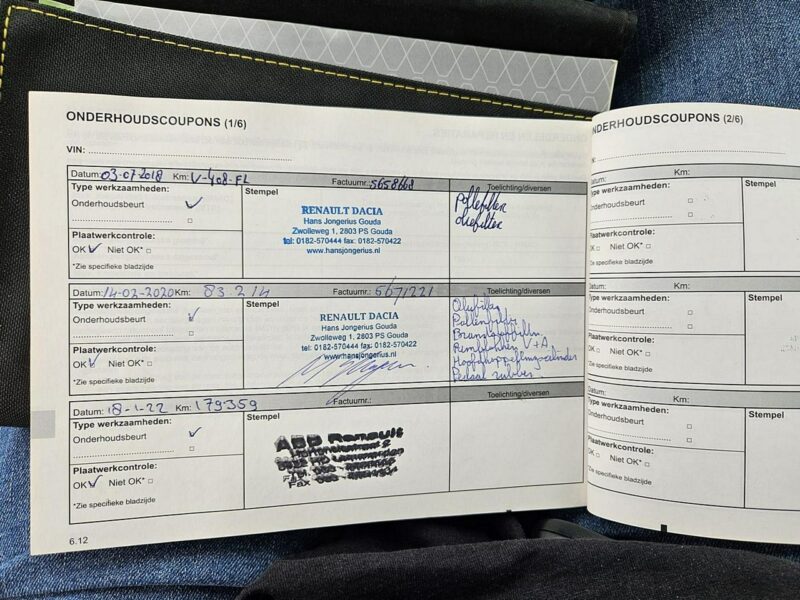 ONDERHOUDSCOUPONS (1/6)
VIN:
Datum: 03-07-2018 Km: V-408-FL Factuurnr.: 5658668 Toelichting/diversen
Type werkzaamheden:
Stempel
Onderhoudsbeurt
Plaatwerkcontrole:
OK Niet OK*
*Zie specifieke bladzijde
RENAULT DACIA
Hans Jongerius Gouda
Zwolleweg 1, 2803 PS Gouda
tel: 0182-570444 fax: 0182-570422
www.hansjongerius.nl
Pollenfilter
oliefilter
Datum: 14-02-2020 Km: 83.214 Factuurnr.: 5671221 Toelichting/diversen
Type werkzaamheden:
Stempel
Onderhoudsbeurt
Plaatwerkcontrole:
OK Niet OK*
*Zie specifieke bladzijde
RENAULT DACIA
Hans Jongerius Gouda
Zwolleweg 1, 2803 PS Gouda
tel: 0182-570444 fax: 0182-570422
www.hansjongerius.nl
Oliefilter
Pollenfilter
Brandstoffilter
Remblokken V+A
Hoofdkoppelingscilinder
Pedaal rubber
Datum: 18-1-22 Km: 179359 Factuurnr.: Toelichting/diversen
Type werkzaamheden:
Stempel
Onderhoudsbeurt
Plaatwerkcontrole:
OK Niet OK*
*Zie specifieke bladzijde
ABD Renault
Leeuwarden
Fax
6.12
ONDERHOUDSCOUPONS (2/6)
Km:
Type werkzaamheden:
Stempel
Onderhoudsbeurt
Plaatwerkcontrole:
OK Niet OK*
*Zie specifieke bladzijde
Datum: Km:
Type werkzaamheden:
Stempel
Onderhoudsbeurt
Plaatwerkcontrole:
OK Niet OK*
*Zie specifieke bladzijde
Datum: Km:
Type werkzaamheden:
Stempel
Onderhoudsbeurt
Plaatwerkcontrole:
OK Niet OK*
*Zie specifieke bladzijde